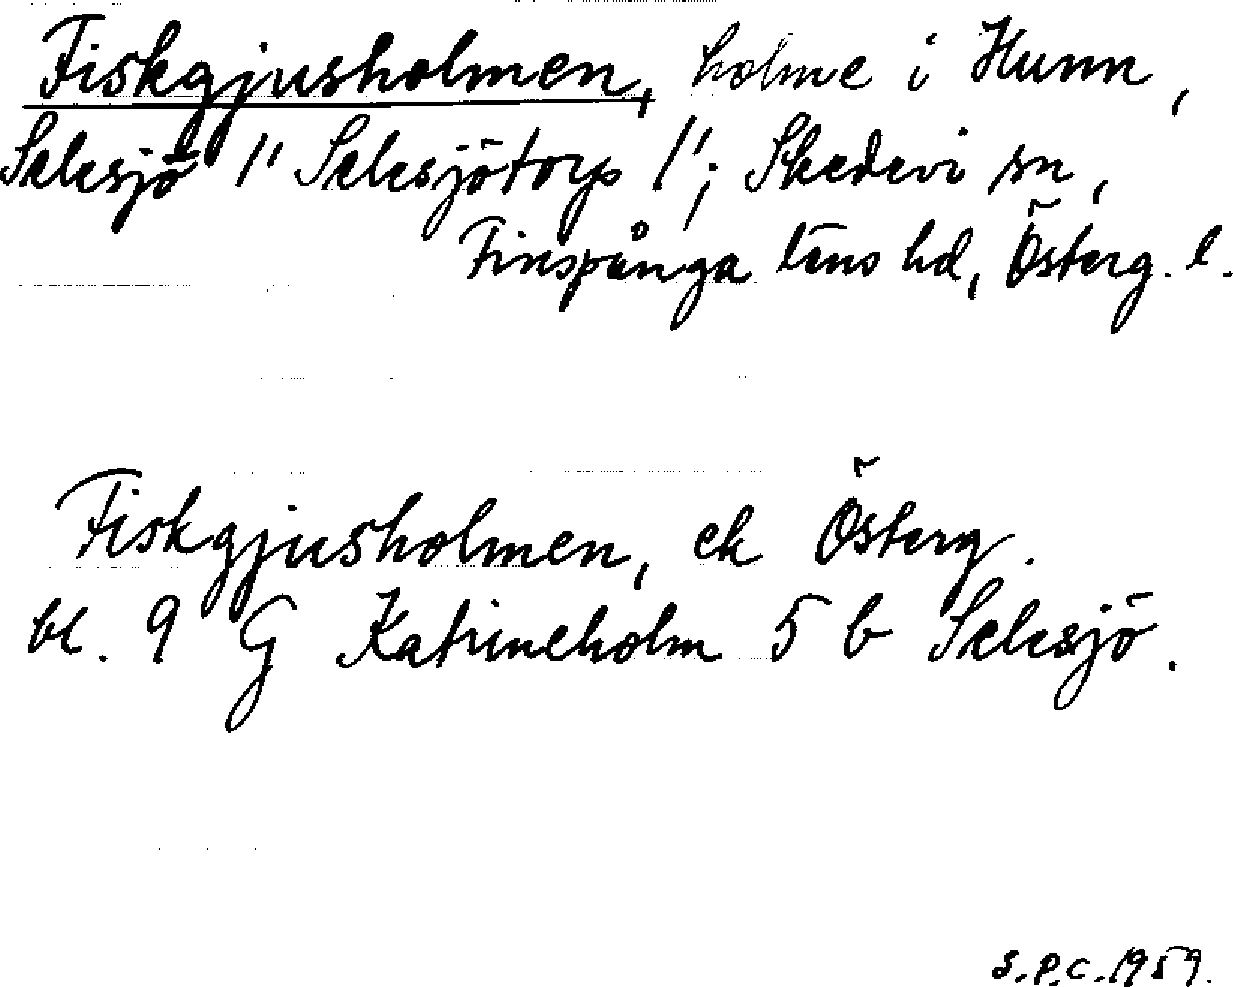 Fiskgjusholmen, holme i Hunn,
Salesjö 1" Salesjötorp 1'; Skedevi sn,
Finspånga läns hd, Österg. l.
Fiskgjusholmen, ek Österg.
bl. 9 G Katrineholm 5 b Salesjö.
S.P.C. 1959.